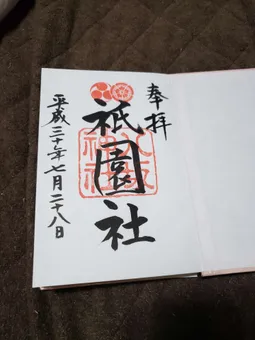 奉拝
八坂
神社
祇園社
平成三十年七月二十八日